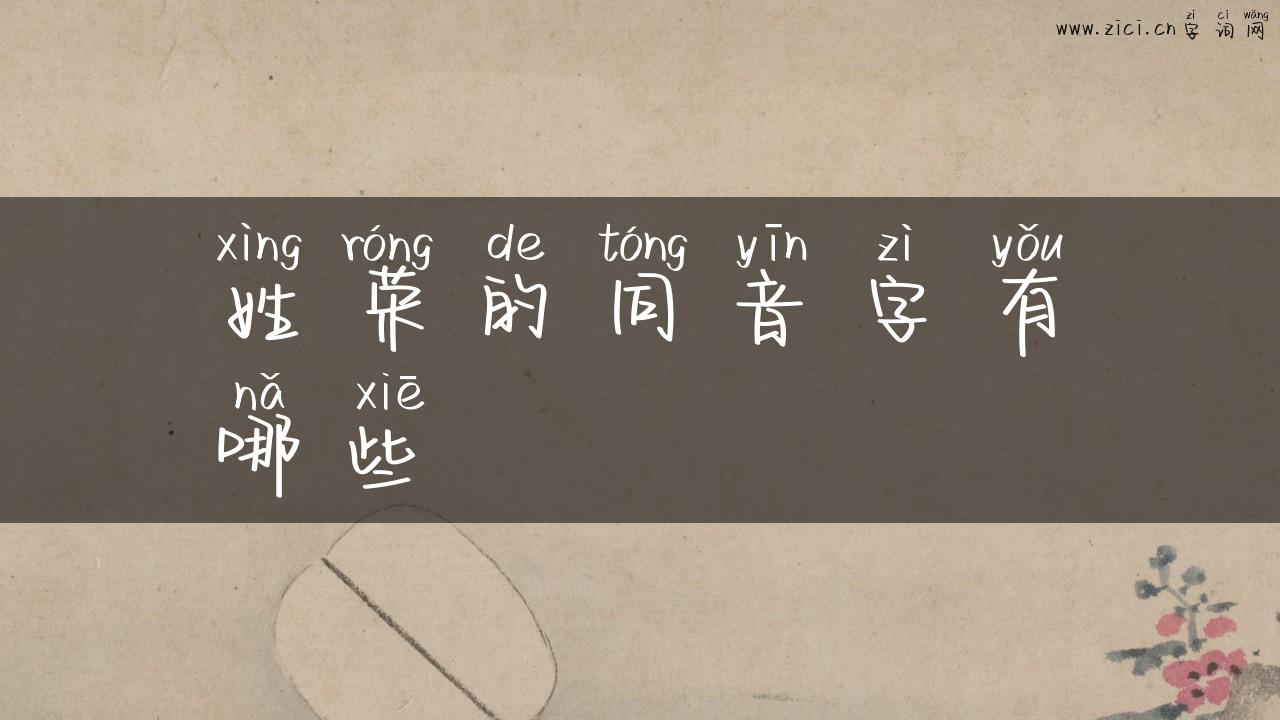 zì cí wǎng
www.zici.cn 字词网
xìng róng de tóng yīn zì yǒu
姓荣的同音字有
nǎ xiē
哪些